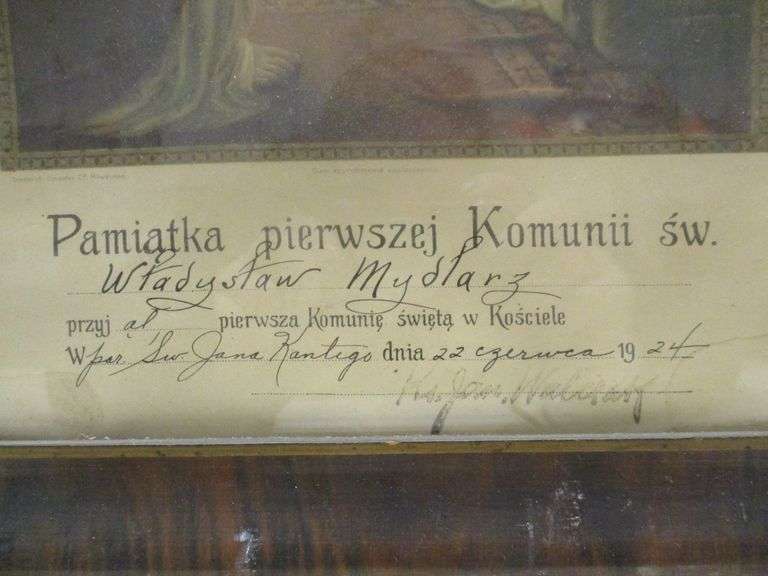 Pamiątka pierwszej Komunii św.
Władysław Mydlarz
przyjął pierwsza Komunię świętą w Kościele
W par. Św. Jana Kantego dnia 22 czerwca 1924
Ks. Jan